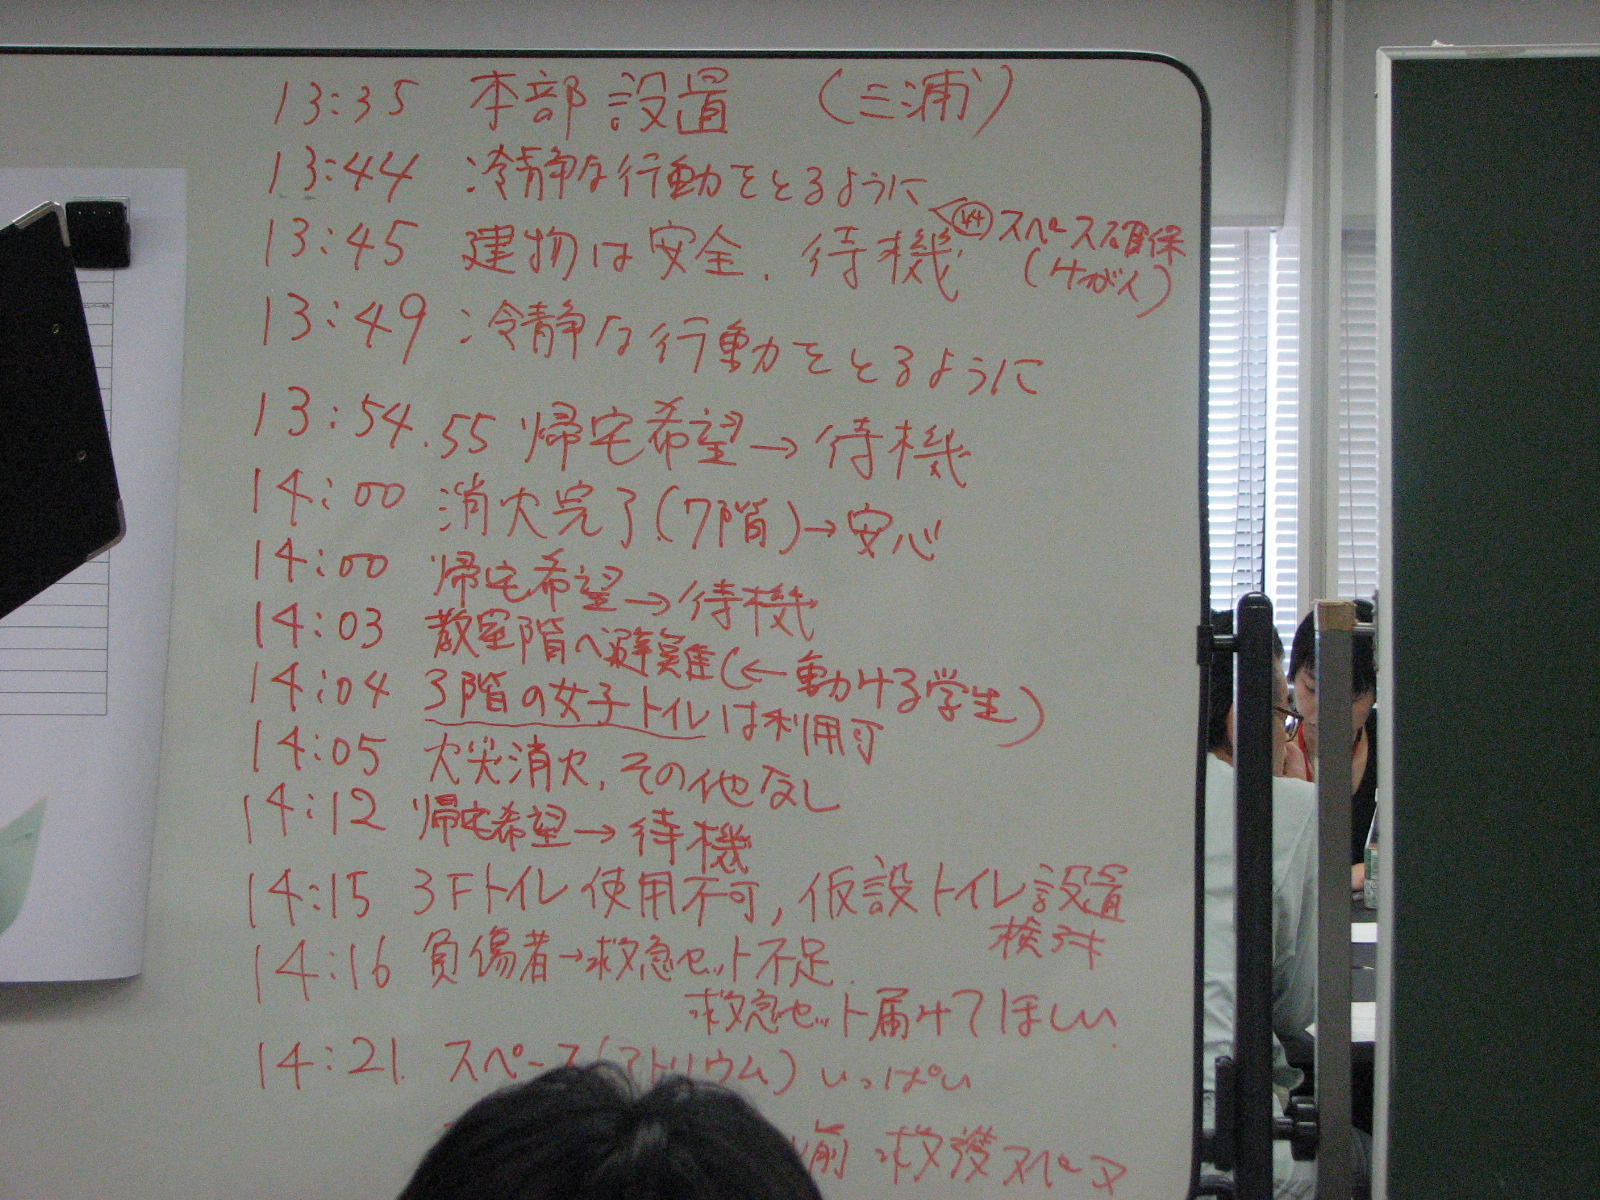 13:35 本部設置 (三浦)
13:44 冷静な行動をとるように
44 スペース確保
(けが人)
13:45 建物は安全. 待機
13:49 冷静な行動をとるように
13:54.55 帰宅希望→待機
14:00 消火完了(7階)→安心
14:00 帰宅希望→待機
14:03 教室階へ避難(←動ける学生)
14:04 3階の女子トイレは利用可
14:05 火災消火, その他なし
14:12 帰宅希望→待機
14:15 3Fトイレ使用不可, 仮設トイレ設置
検討
14:16 負傷者→救急セット不足.
救急セット届けてほしい.
14:21. スペース(アトリウム)いっぱい
前 救護スペース